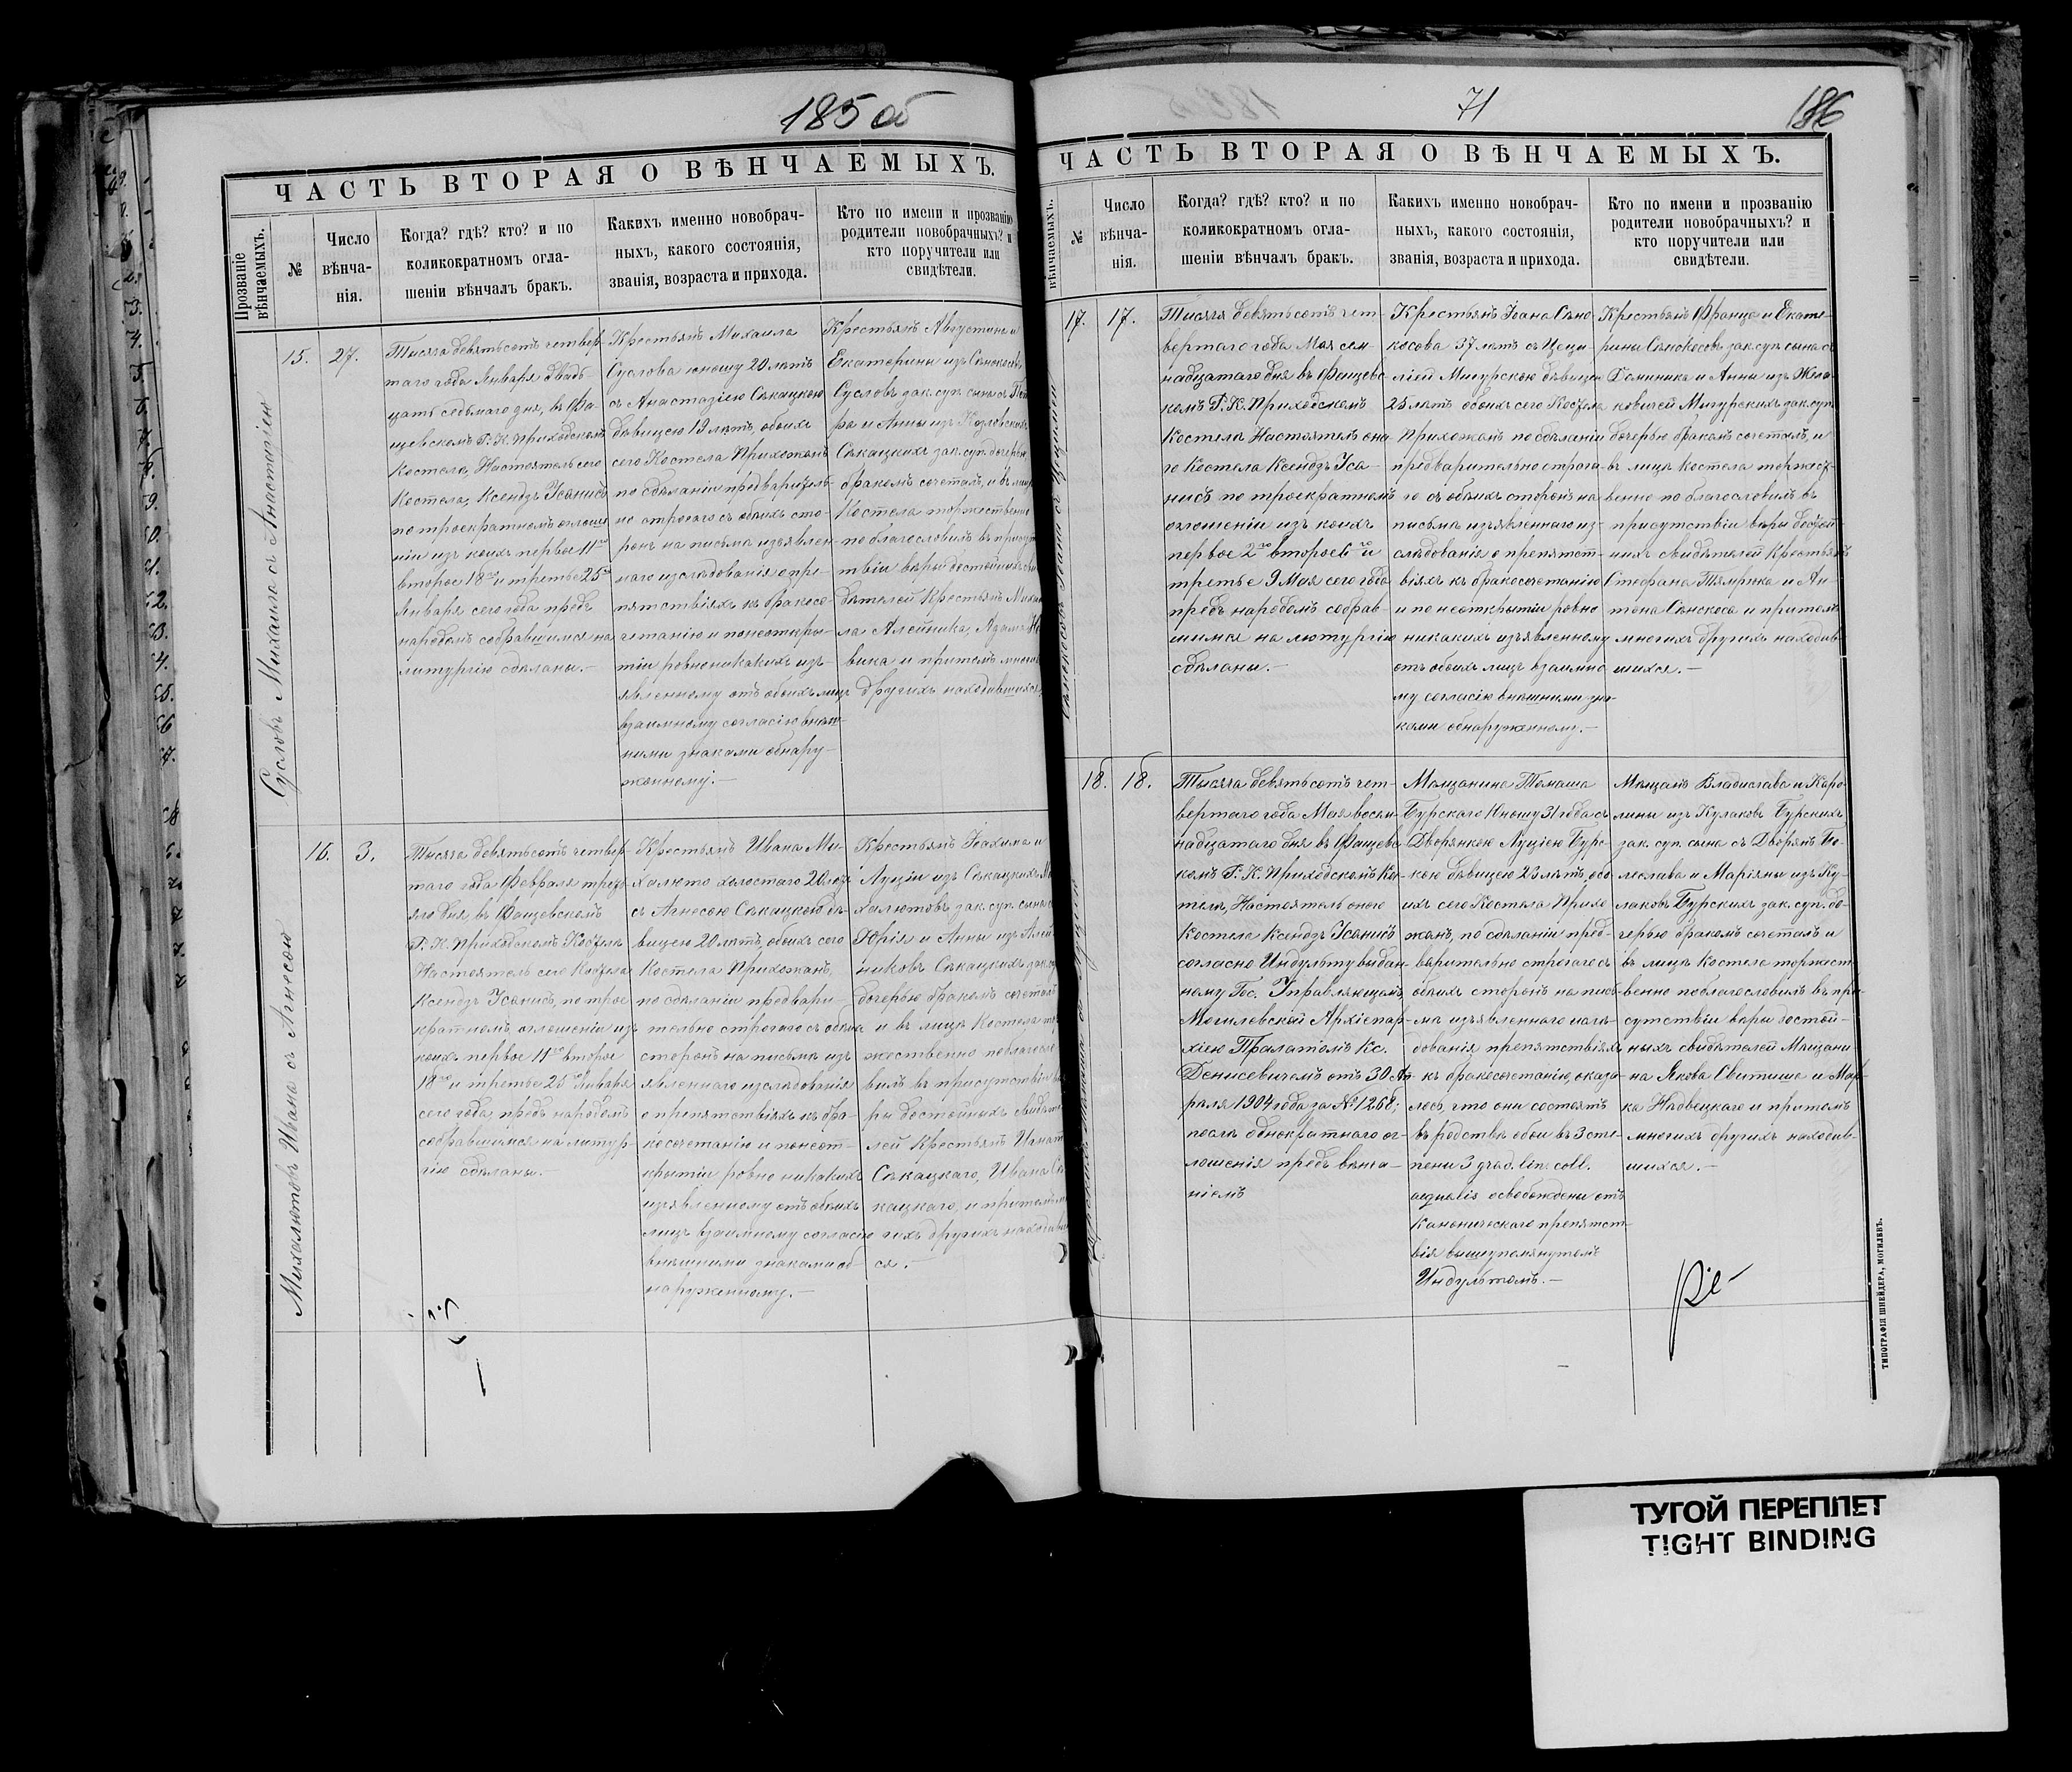 185 об
ЧАСТЬ ВТОРАЯ О ВѢНЧАЕМЫХЪ.
Прозваніе вѣнчаемыхъ.
№
Число
вѣнча-
нія.
Когда? гдѣ? кто? и по
коликократномъ огла-
шеніи вѣнчалъ бракъ.
Какихъ именно новобрач-
ныхъ, какого состоянія,
званія, возраста и прихода.
Кто по имени и прозванію
родители новобрачныхъ? и
кто поручители или
свидѣтели.
Сусловъ Михаила съ Анастазіею
15.
27.
Тысяча девятьсотъ четвер-
таго года Января двад-
цать седьмаго дня, въ Фа-
щевскомъ Р. К. Приходскомъ
Костелѣ, Настоятель сего
Костела, Ксендзъ Усанисъ
по троекратномъ оглаше
ніи изъ коихъ первое 11го
второе 18го и третье 25го
Января сего года предъ
народомъ собравшимся на
литургію сдѣланы.–
Крестьянъ Михаила
Суслова юношу 20 лѣтъ
съ Анастазіею Сѣкацкою
дѣвицею 19 лѣтъ, обоихъ
сего Костела Прихожанъ
по сдѣланіи предваритель-
но строгаго съ обоихъ сто-
ронъ на письмѣ изъявлен-
наго изслѣдованія о пре-
пятствіяхъ къ бракосо-
четанію и понеоткры-
тіи ровно никакихъ изъ-
явленному отъ обоихъ лицъ
взаимному согласію внѣш-
ними знаками обнару-
женному.–
Крестьянъ Августина и
Екатерины изъ
Сусловъ зак. суп. сына съ
ра и Анны изъ Козловскихъ
Сѣкацкихъ зак. суп. дочерью
бракомъ сочеталъ, и въ лицѣ
Костела торжественно
поблагословилъ въ присут
ствіи вѣры достойныхъ сви
дѣтелей Крестьянъ Михаи
ла Алейника, Адама
вика и притомъ многихъ
другихъ находившихся
Михолютовъ Ивана съ Агнесою
16.
3.
Тысяча девятьсотъ четвер-
таго года Февраля треть
яго дня, въ Фащевскомъ
Р. К. Приходскомъ Костелѣ
Настоятель сего Костела
Ксендзъ Усанисъ, по трое
кратномъ оглашеніи изъ
коихъ первое 11го второе
18го и третье 25го Января
сего года, предъ народомъ
собравшимся на литур-
гію сдѣланы.–
Крестьянъ Ивана Ми-
халюто холостаго 20 лѣтъ
съ Агнесою Сѣкацкою дѣ-
вицею 20 лѣтъ, обоихъ сего
Костела Прихожанъ,
по сдѣланіи предвари-
тельно строгаго съ обоихъ
сторонъ на письмѣ изъ
явленнаго изслѣдованія
о препятствіяхъ къ бра-
косочетанію и понеот-
крытіи ровно никакихъ
изъявленному отъ обоихъ
лицъ взаимному согласію
внѣшними знаками об-
наруженному.–
Крестьянъ Іоахима и
Луціи изъ Сѣкацкихъ
халютовъ зак. суп. сына съ
Юрія и Анны изъ Алей
никовъ Сѣкацкихъ зак.
дочерью бракомъ сочеталъ
и въ лицѣ Костела тор
жественно поблагосло
вилъ въ присутствіи вѣ
ры достойныхъ свидѣте
лей Крестьянъ Игнат
Сѣкацкаго, Ивана Сѣ
кацкаго, и притомъ мно
гихъ другихъ находивших
ся.–
71
186
ЧАСТЬ ВТОРАЯ О ВѢНЧАЕМЫХЪ.
вѣнчаемыхъ.
№
Число
вѣнча-
нія.
Когда? гдѣ? кто? и по
коликократномъ огла-
шеніи вѣнчалъ бракъ.
Какихъ именно новобрач-
ныхъ, какого состоянія,
званія, возраста и прихода.
Кто по имени и прозванію
родители новобрачныхъ? и
кто поручители или
свидѣтели.
17.
17.
Тысяча девятьсотъ чет-
вертаго года Мая сем-
надцатаго дня въ Фащевс-
комъ Р. К. Приходскомъ
Костелѣ Настоятель она-
го Костела Ксендзъ Уса-
нисъ по троекратномъ
оглашеніи изъ коихъ
первое 2го второе 6го и
третье 9 Мая сего года
предъ народомъ собрав-
шимся на литургію
сдѣланы.–
Крестьянъ Іоана Сѣно
косова 37 лѣтъ съ Цеци-
ліей Мигурскою дѣвицею
25 лѣтъ обоихъ сего Костела
Прихожанъ по сдѣланіи
предварительно строга-
го съ обоихъ сторонъ на
письмѣ изъявленнаго из-
слѣдованія о препятст-
віяхъ къ бракосочетанію
и по неоткрытіи ровно
никакихъ изъявленному
отъ обоихъ лицъ взаимно
му согласію внѣшними зна-
ками обнаруженному.–
Крестьянъ Франца и Екате-
рины Сѣнокосовъ зак. суп. сына съ
Доминика и Анны изъ Жела-
ковичей Мигурскихъ зак. суп.
дочерью бракомъ сочеталъ, и
въ лицѣ костела торжест-
венно поблагословилъ въ
присутствіи вѣры достой-
ныхъ свидѣтелей Крестьянъ
Стефана Тямрука и Ан-
тона Сѣнокоса и притомъ
многихъ другихъ находив-
шихся.–
18.
18.
Тысяча девятьсотъ чет-
вертаго года Мая восем-
надцатаго дня въ Фащевс
комъ Р. К. Приходскомъ Ко-
телѣ, Настоятель оного
Костела Ксендзъ Усанисъ
согласно Индульту выдан-
ному Гос. Управляющимъ
Могилевской Архіепар-
хіею Пралатомъ Кс.
Денисевичемъ отъ 30 Ап-
рѣля 1904 года за № 1268;
послѣ однократнаго ог-
лашенія предъ вѣнча-
ніемъ
Мѣщанина Томаша
Бурскаго Юношу 31 года съ
Дворянкою Луціею Бурс-
кою дѣвицею 23 лѣтъ, обо
ихъ сего Костела Прихо
жанъ, по сдѣланіи пред-
варительно строгаго съ
обоихъ сторонъ на пись-
мѣ изъявленнаго изслѣ-
дованія препятствіяхъ
къ бракосочетанію, оказа-
лось, что они состоятъ
въ родствѣ обои въ 3 сте-
пени 3 grad. lin. coll.
aequalis освобождены отъ
Каноническаго препятст-
вія вышеупомянутомъ
Индультомъ.–
Мѣщанъ Владислава и Каро-
лины изъ Кулаковъ Бурскихъ
зак. суп. сына съ Дворянъ Бо-
леслава и Маріяны изъ Ку-
лаковъ Бурскихъ зак. суп. до-
черью бракомъ сочеталъ и
въ лицѣ Костела торжест-
венно поблагословилъ въ при-
сутствіи вѣры достой-
ныхъ свидѣтелей Мѣщани-
на Якова Свитиша и Мар-
ка Надвецкаго и притомъ
многихъ другихъ находив-
шихся.–
ТИПОГРАФІЯ ШНЕЙДЕРА, МОГИЛЕВЪ.
ТУГОЙ ПЕРЕПЛЕТ
TIGHT BINDING